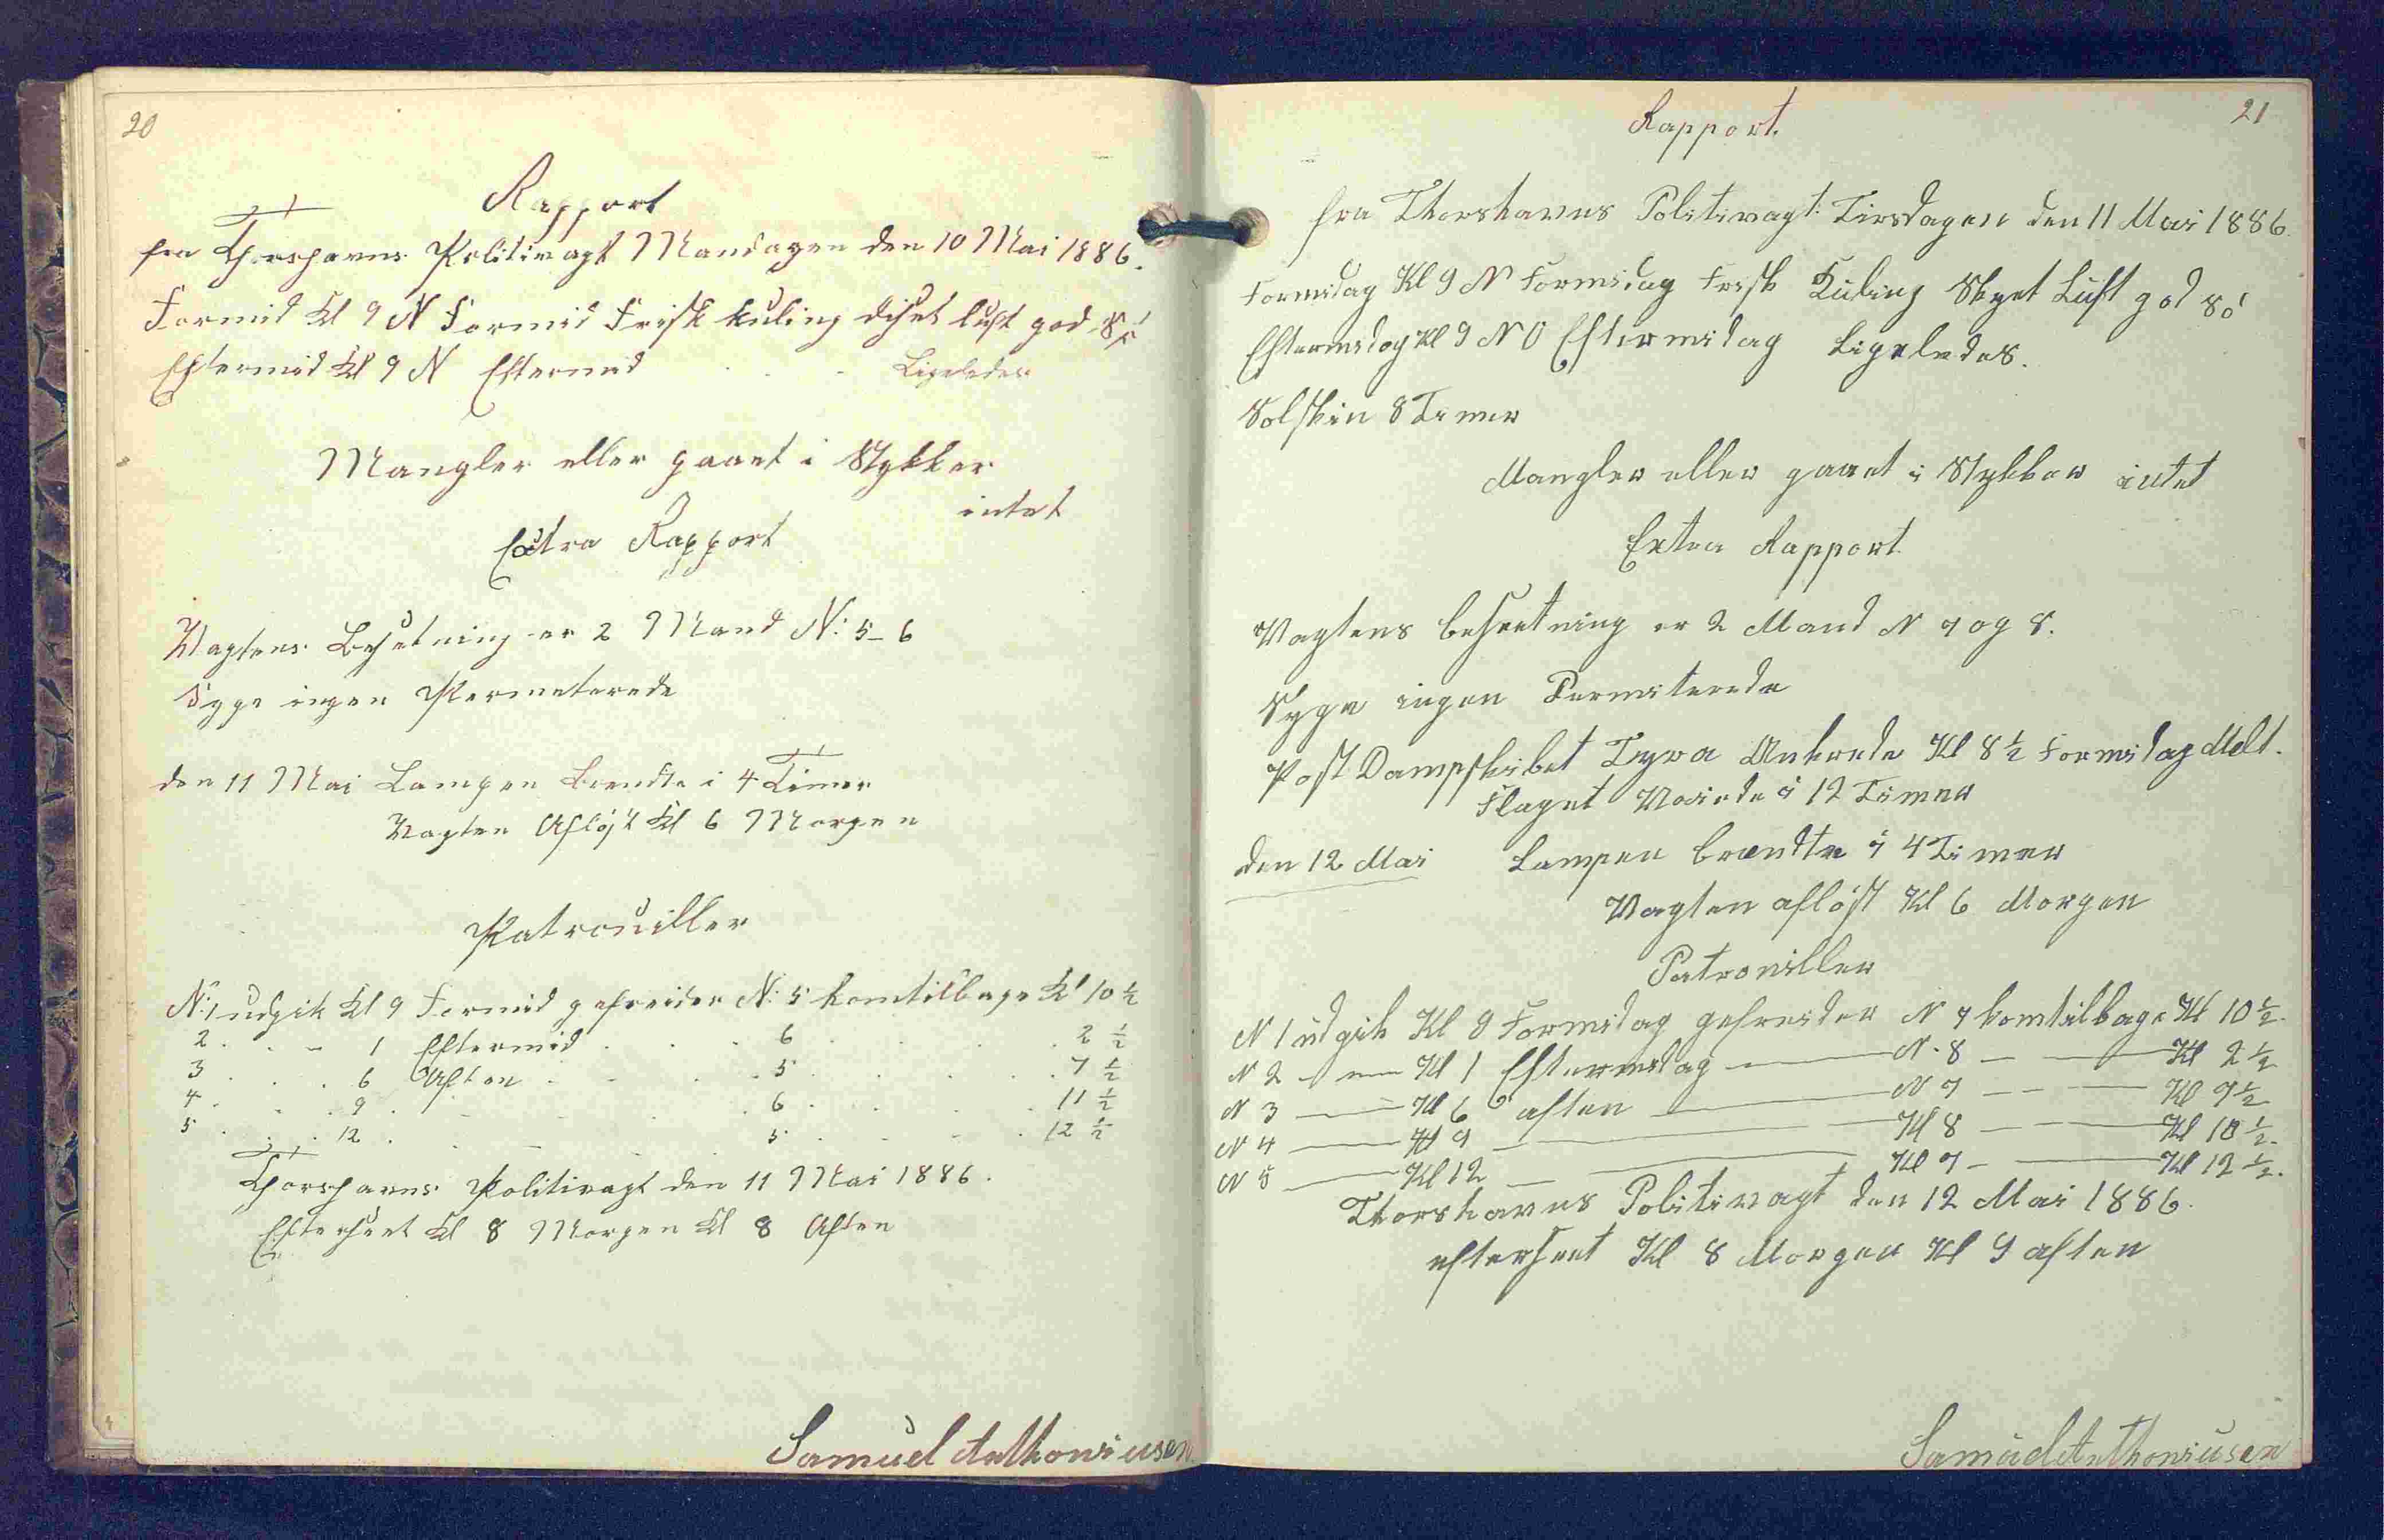 20
Rapport
fra Thorshavns Politivagt Mandagen den 10 Mai 1886.
Formid Kl 9 N Formid Frisk kuling diset luft god Sö
Eftermid Kl 9 N Eftermid . . Ligeledes
Mangler eller gaaet i Stykker
intet
Extra Rapport
Vagtens Besetning er 2 Mand N: 5-6
Syge ingen Permeterede
den 11 Mai Lampen brendte i 4 Timer
Vagten Aflöst Kl 6 Morgen
Patrouiller
N: 1 udgik Kl 9 Formid gefreider N: 5 komtilbage Kl 10 ½
2 . . - 1 Eftermid . . . 6 . . . . 2 ½
3 . . . 6 Aften . . . . 5 . . . . 7 ½
4 . . . 9 . . . . 6 . . . . 11 ½
5 . . . 12 . . . 5 . . . . 12 ½
Thorshavns Politivagt den 11 Mai 1886.
Efterseet Kl 8 Morgen Kl 8 Aften
Samuel Anthoniusen
21
Rapport.
fra Thorshavns Politivagt: Tirsdagen den 11 Mai 1886.
Formidag Kl 9 N Formidag Frisk Kuling Skyet Luft god Sö
Eftermidag Kl 9 N O Eftermidag Ligeledes.
Solskin 8 Timer
Mangler eller gaaet i Stykker intet
Extra Rapport.
Vagtens besætning er 2 Mand N 7 og 8.
Syge ingen Permiterede
Post Dampskibet Tyra Ankrede Kl 8 ½ Formidag Melt.
Flaget Vaiede i 12 Timer
den 12 Mai Lampen brændte i 4 Timer
Vagten aflöst Kl 6 Morgen
Patrouiller
N 1 udgik Kl 9 Formidag gefreider N 7 komtilbage Kl 10 ½.
N 2 — — Kl 1 Eftermidag — N. 8 — — Kl 2 ½
N 3 — — Kl 6 aften — N 7 — — Kl 7 ½
N 4 — Kl 9 — — Kl 8 — — Kl 10 ½.
N 5 — Kl 12 — — Kl 7 — — Kl 12 ½.
Thorshavns Politivagt den 12 Mai 1886.
efterseet Kl 8 Morgen Kl 9 aften
Samuel Anthoniusen